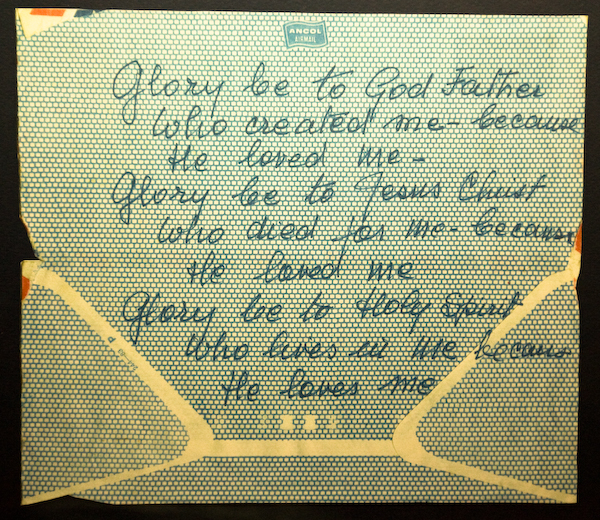 ANCOL
AIRMAIL
Glory be to God Father
Who created me - because
He loved me -
Glory be to Jesus Christ
Who died for me - because
He loved me
Glory be to Holy Spirit
Who lives in me because
He loves me